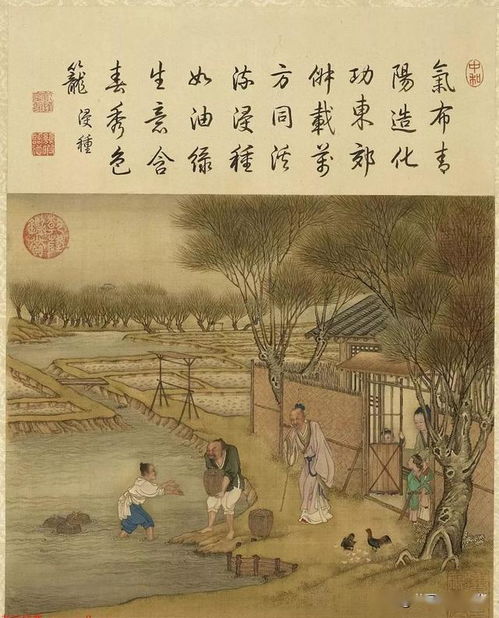 中和
氣布青
陽造化
功東郊
俶載萬
方同溪
流浸種
如油綠
生意含
春秀色
籠 浸種